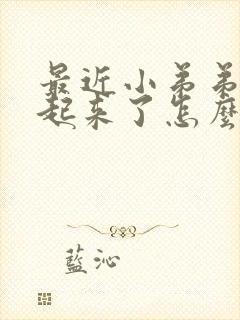 最近小弟弟
起来了怎麼
藍沁